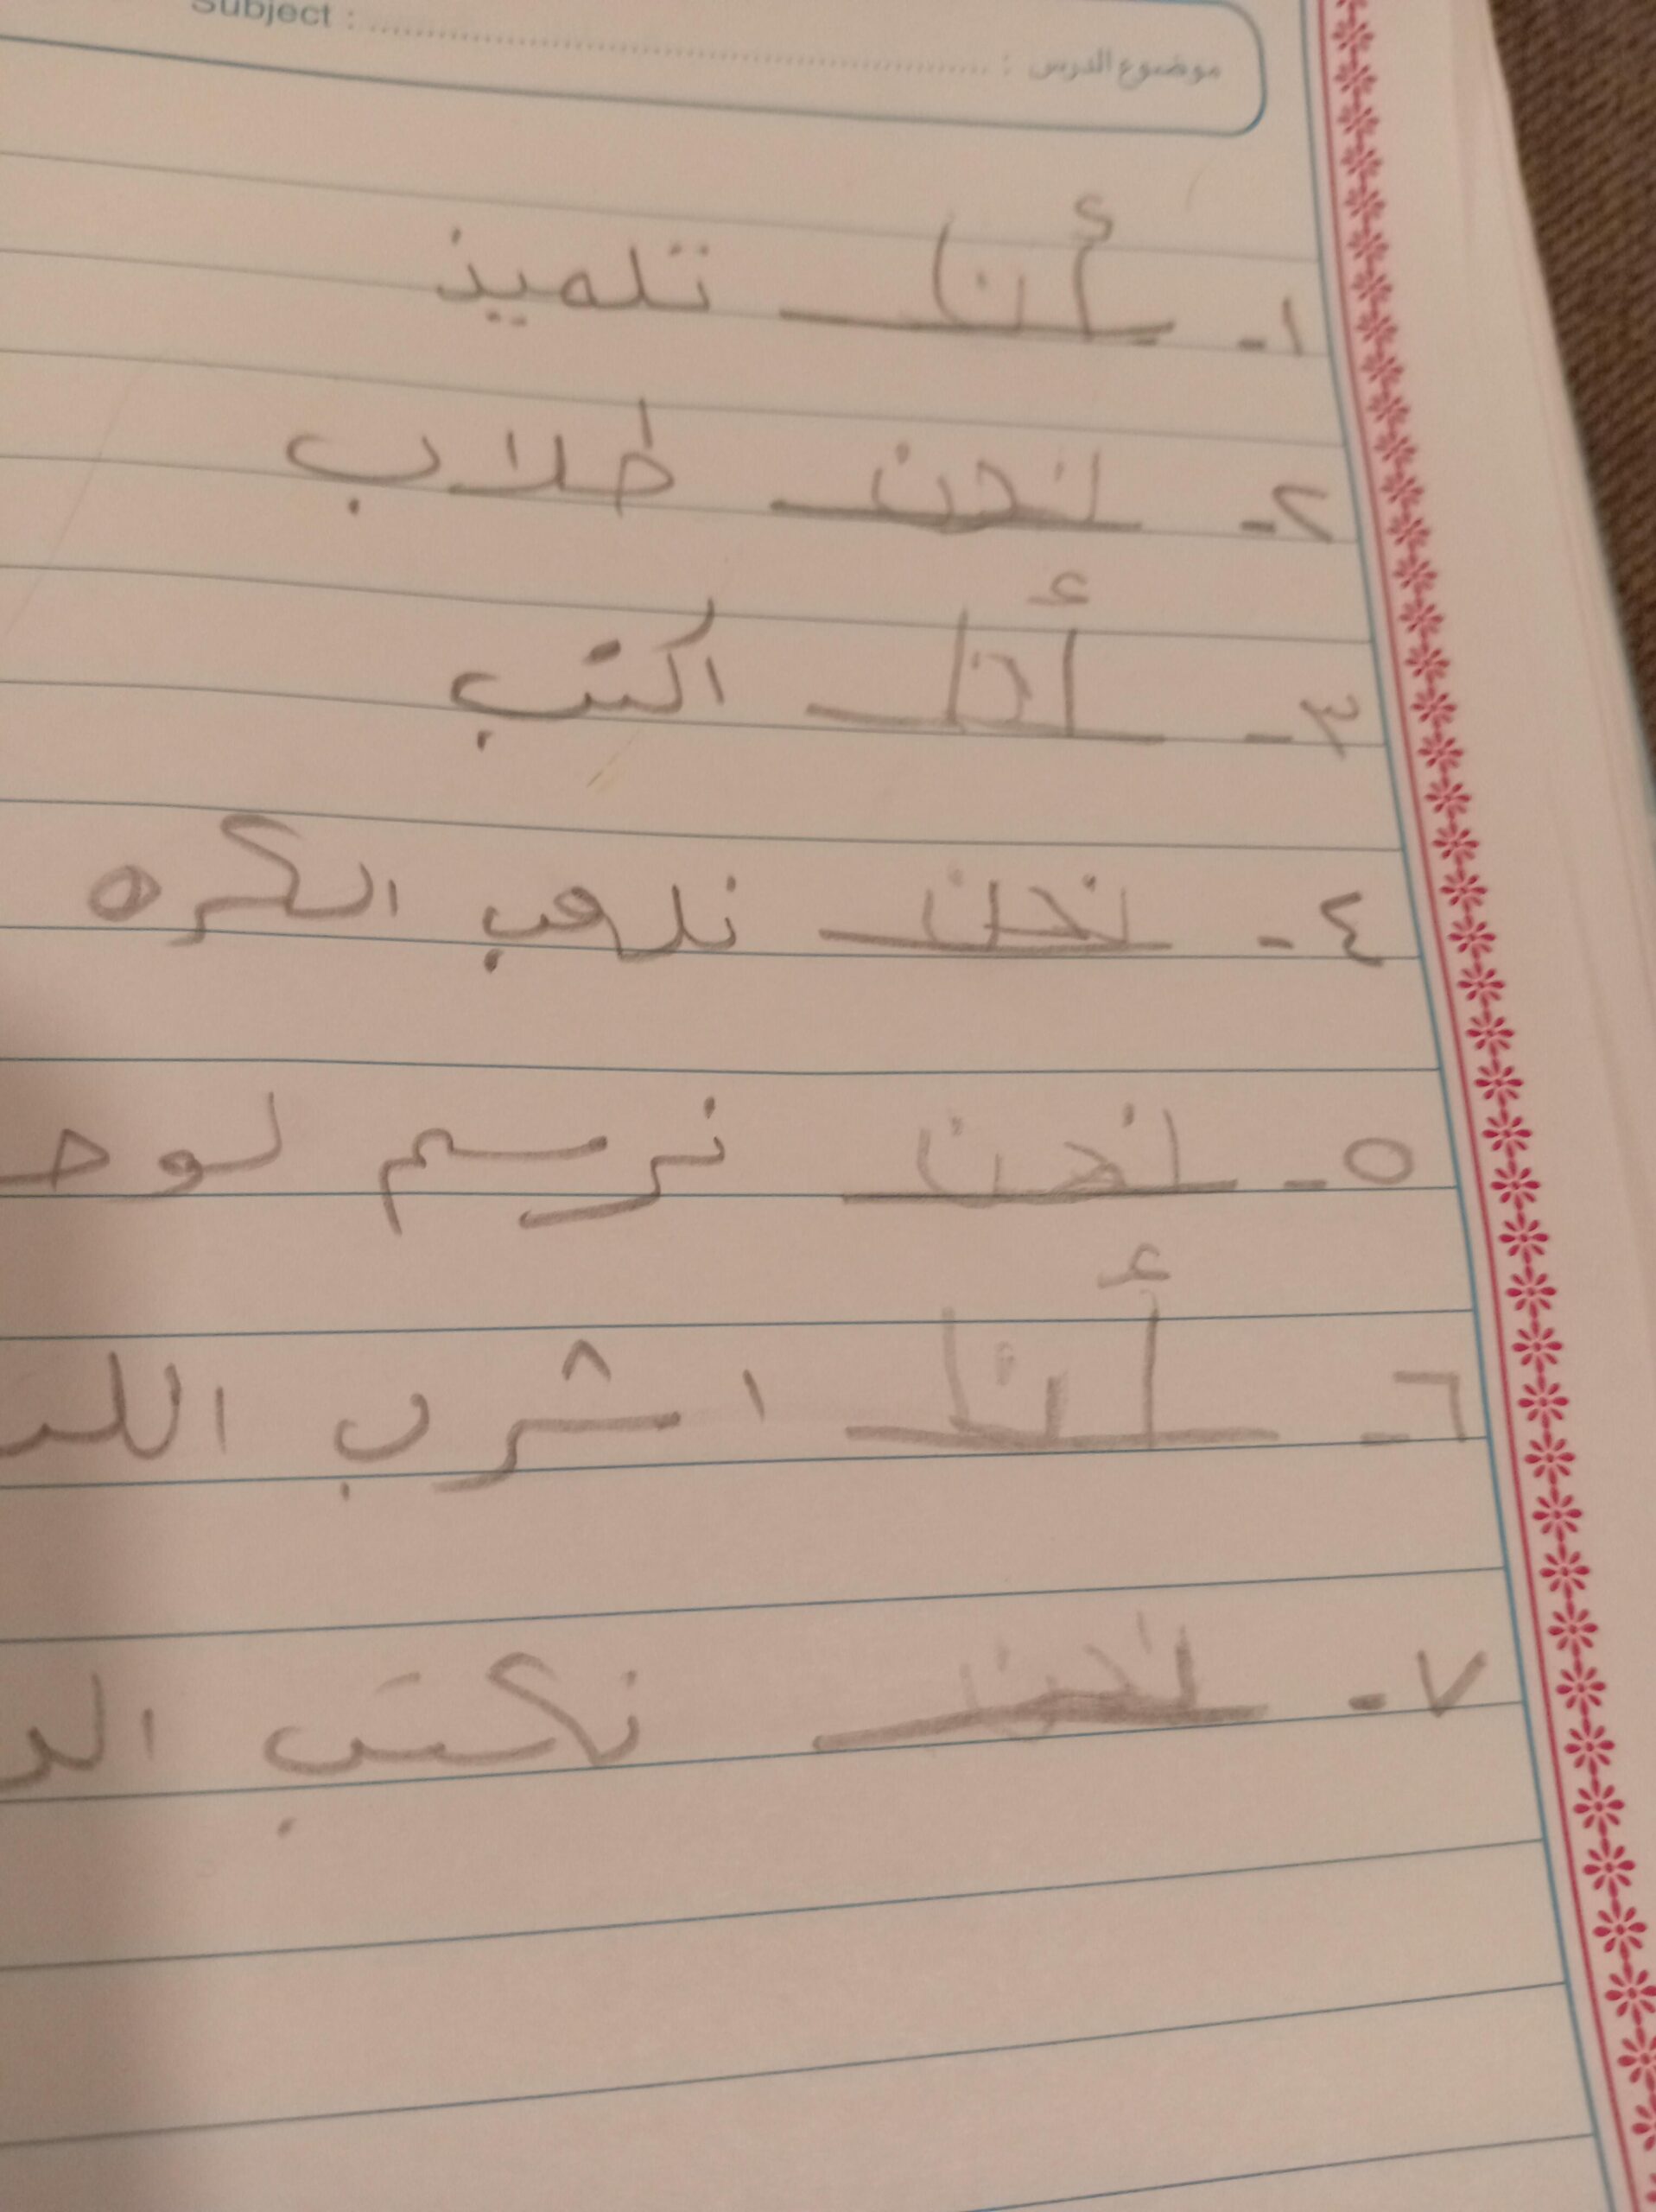 Subject : موضوع الدرس :
١- أنا تلميذ
٢- نحن طلاب
٣- أنا اكتب
٤- نحن نلعب الكره
٥- نحن نرسم لوحـ
٦- أنا اشرب اللبـ
٧- نحن نكتب الد